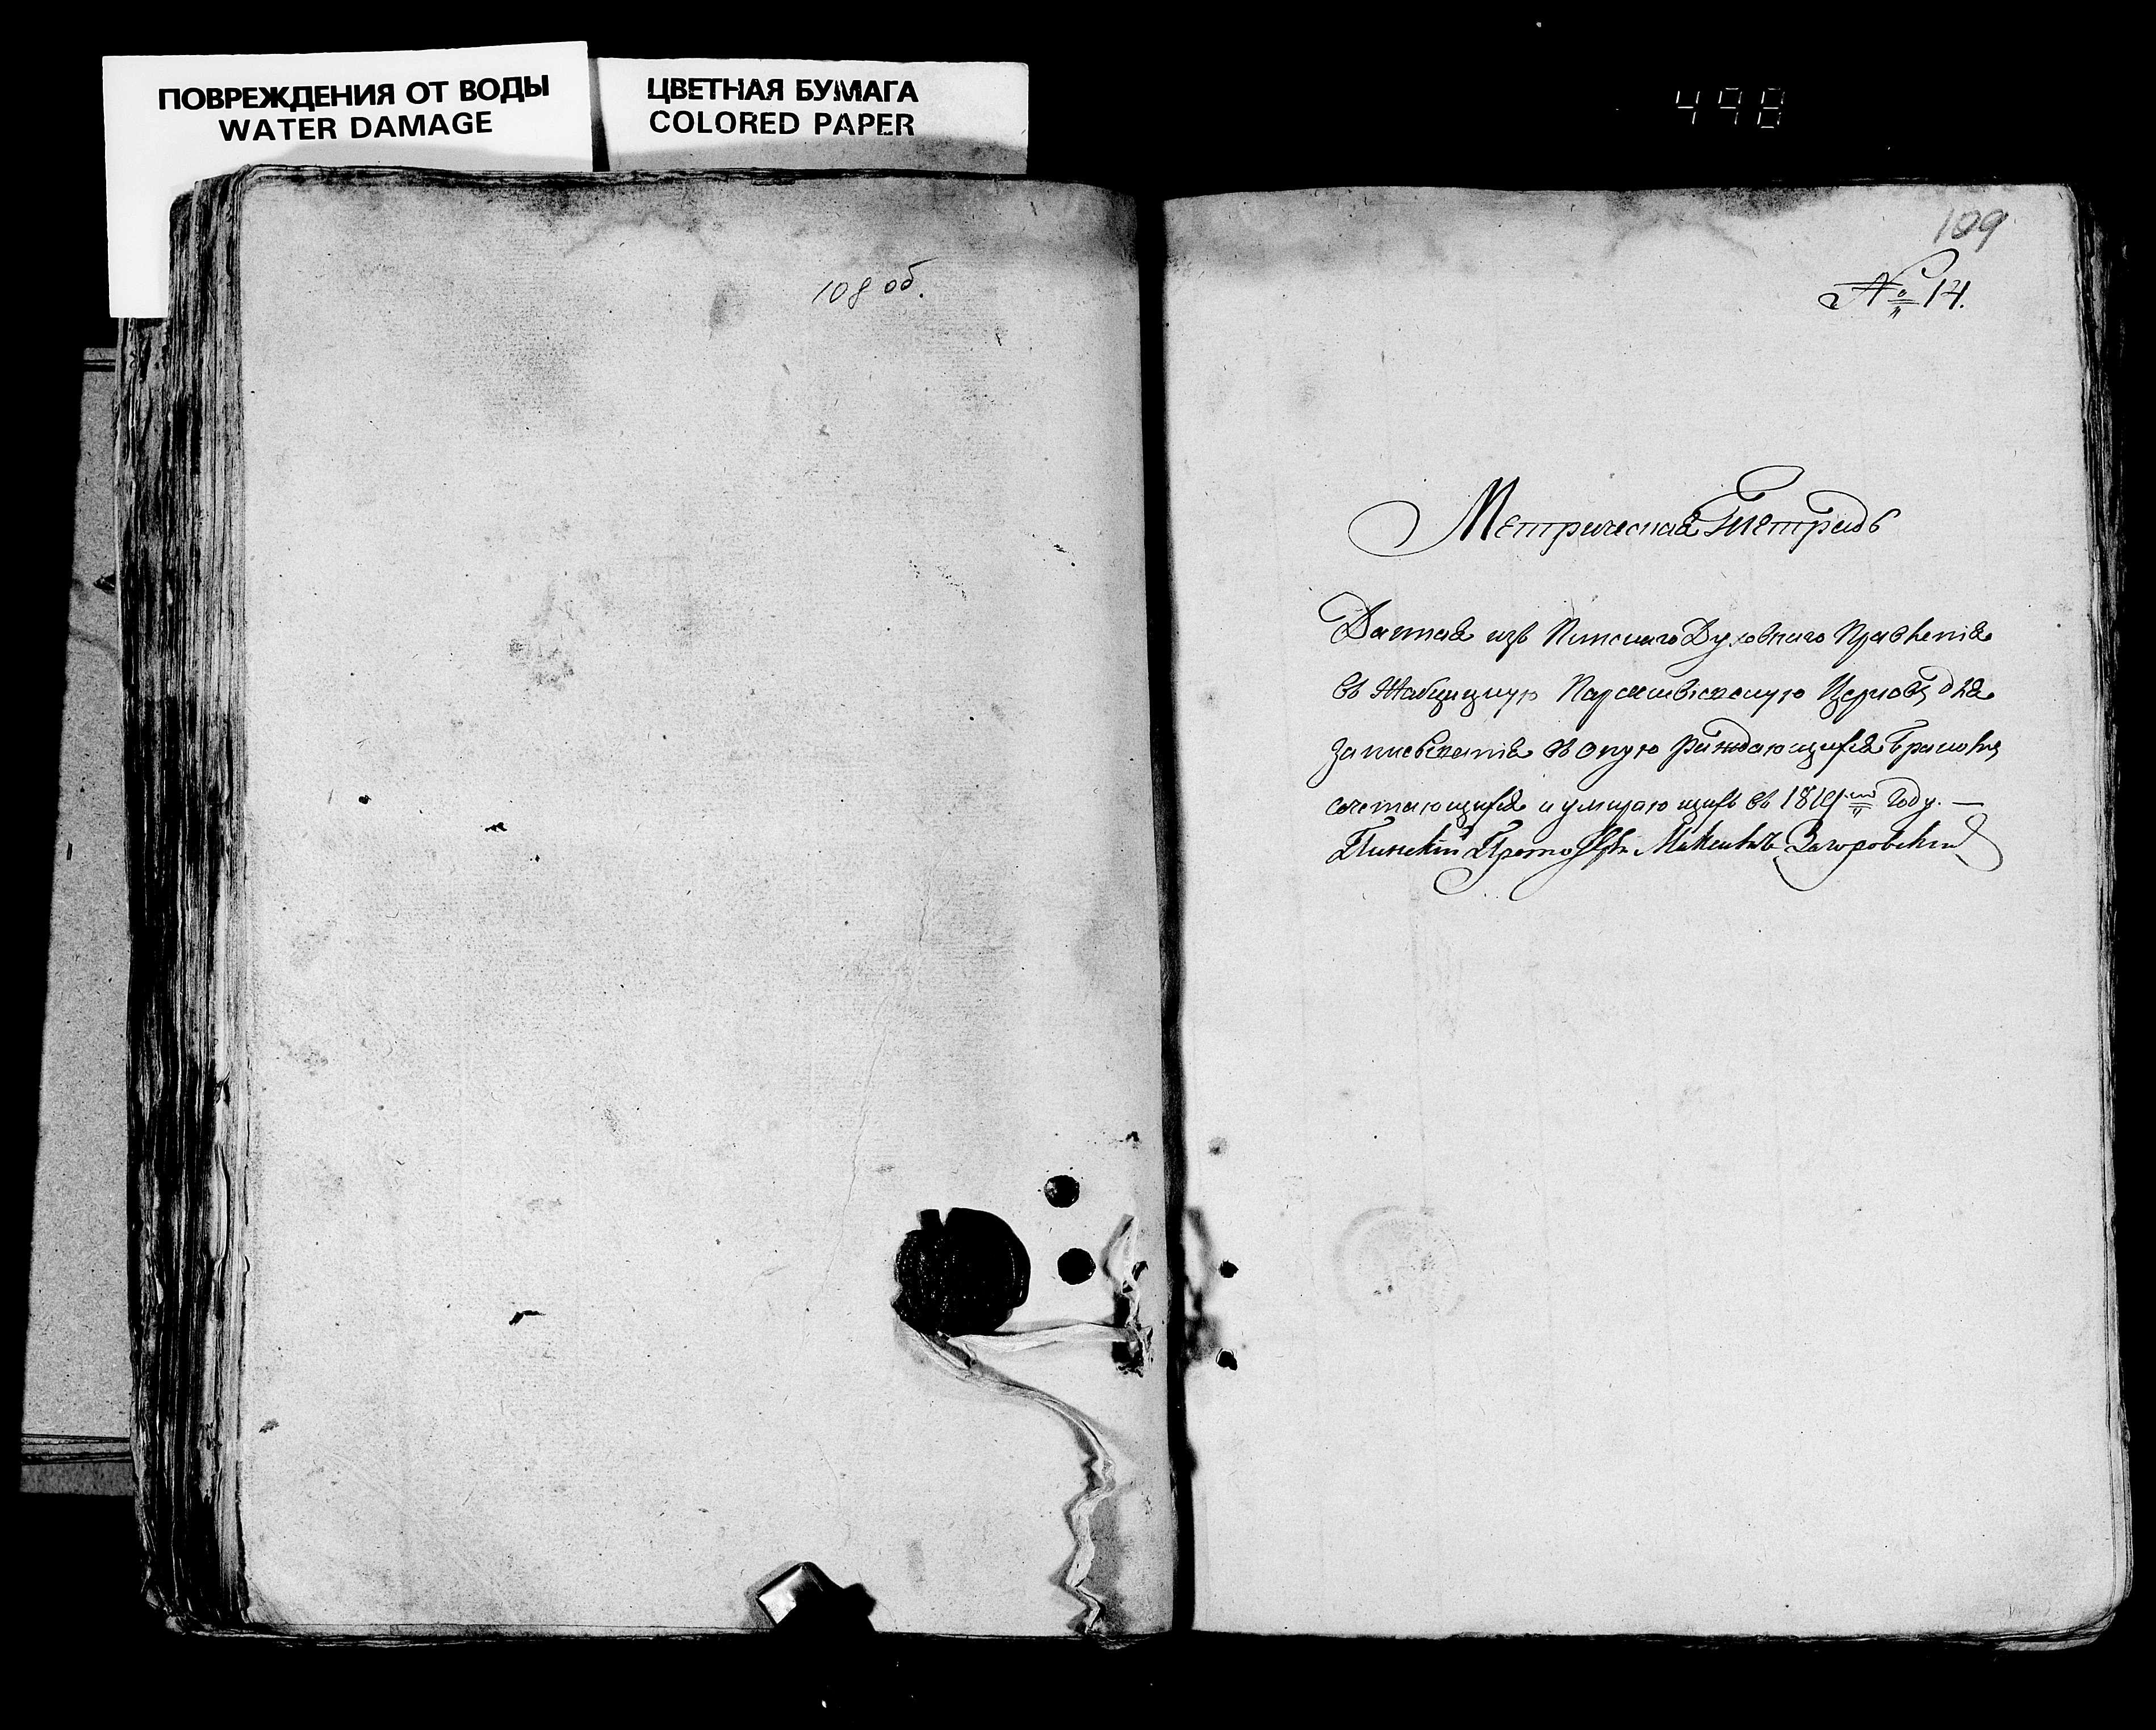 ПОВРЕЖДЕНИЯ ОТ ВОДЫ
WATER DAMAGE
ЦВЕТНАЯ БУМАГА
COLORED PAPER
498
108 об.
109
№ 14.
Метрическая Тетрадь
Данная изъ Пинскаго Духовнаго Правленія
въ Жабчицкую Параскевіевскую Церковь для
записыванія въ оную раждающихся бракомъ
сочетающихся и умирающихъ въ 1819мъ Году. —
Пинскій Протоіерей Загоровскій